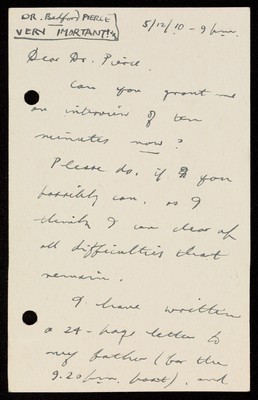 DR. Bedford PIERCE
VERY IMPORTANT!!
5/12/10 - 9 p.m.
Dear Dr. Pierce.
Can you grant me
an interview of ten
minutes now?
Please do, if you
possibly can, as I
think I can clear up
all difficulties that
remain.
I have written
a 24-page letter to
my father (for the
9.20 p.m. post), and